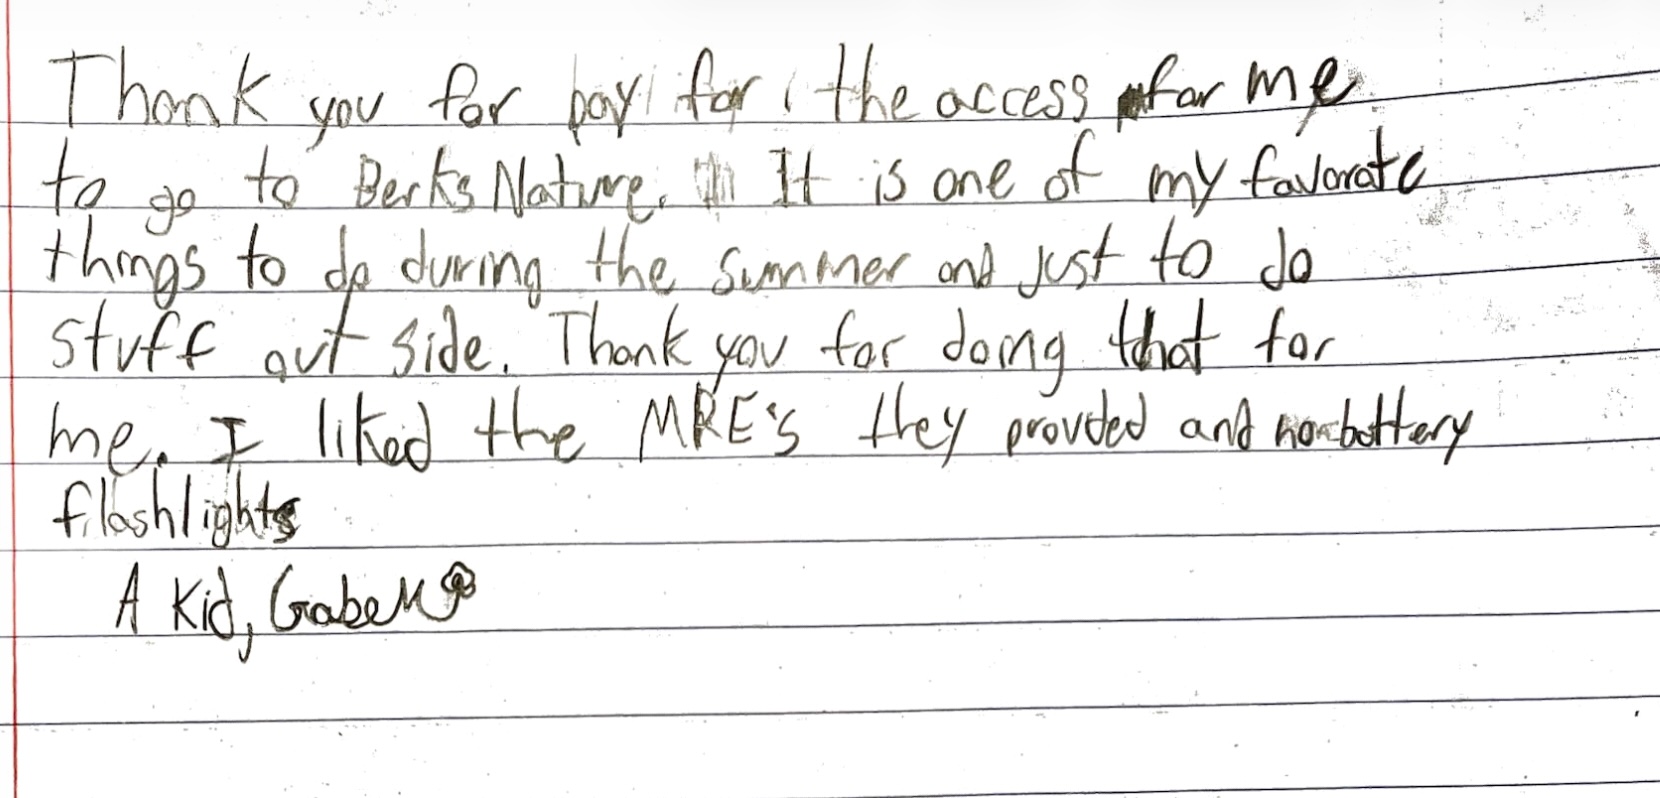 Thank you for pay for the access for me
to go to Berks Nature. It is one of my favorate
things to do during the summer and just to do
stuff out side. Thank you for doing that for
me. I liked the MRE's they provided and non-battery
flashlights
A Kid, Gabe M